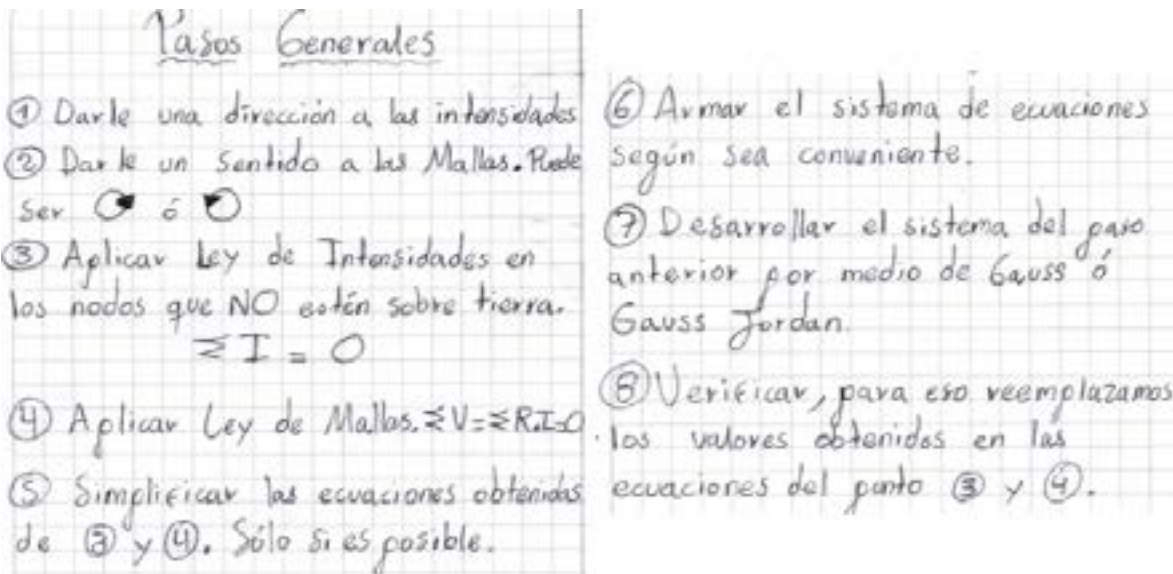 Pasos Generales
① Darle una dirección a las intensidades
② Darle un Sentido a las Mallas. Puede
ser ó
③ Aplicar Ley de Intensidades en
los nodos que NO estén sobre tierra.
ΣI = 0
④ Aplicar Ley de Mallas. ΣV=ΣR.I=0
⑤ Simplificar las ecuaciones obtenidas
de ③ y ④. Sólo si es posible.
⑥ Armar el sistema de ecuaciones
según sea conveniente.
⑦ Desarrollar el sistema del paso
anterior por medio de Gauss ó
Gauss Jordan.
⑧ Verificar, para eso reemplazamos
los valores obtenidos en las
ecuaciones del punto ③ y ④.